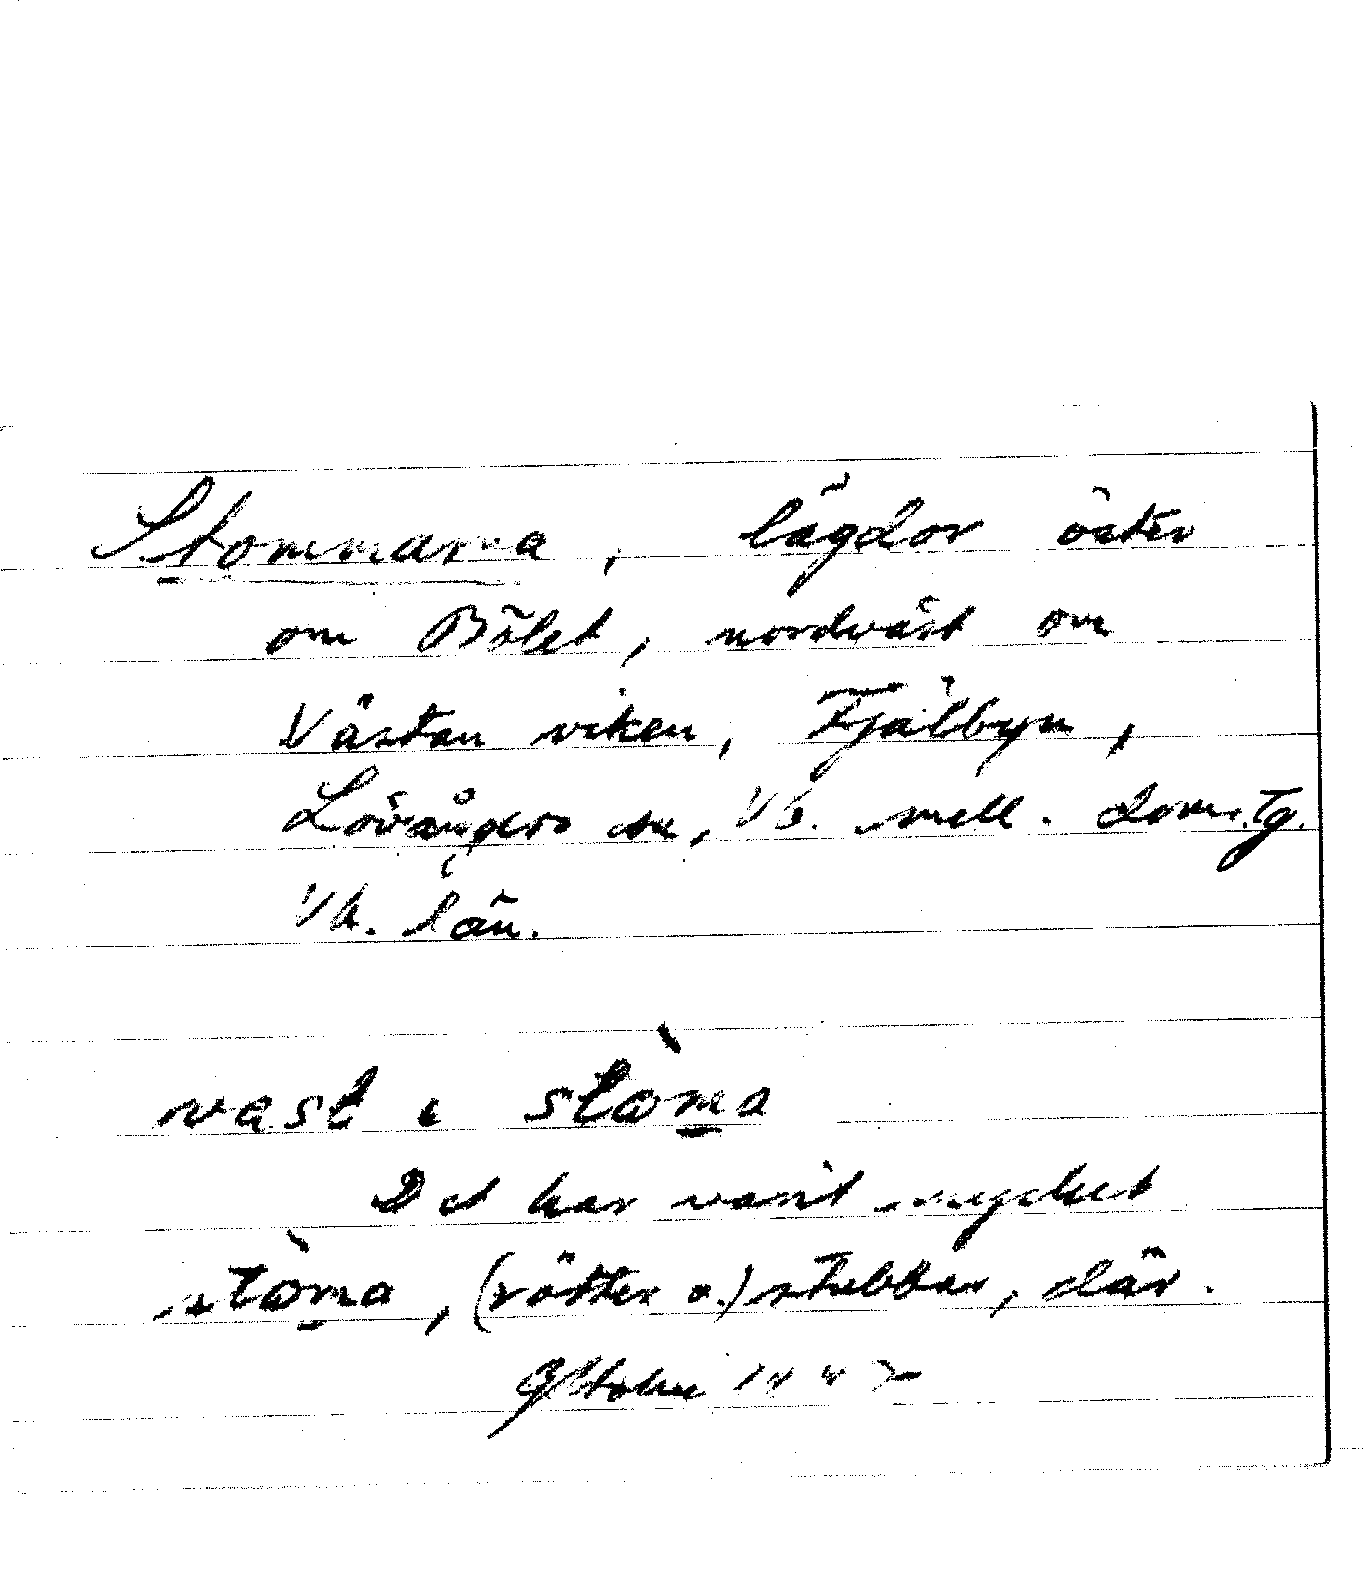 Stommarna, lägdor öster
om Bölet, nordväst om
Västanviken, Fjälbyn,
Lövångers sn, Vb. mell. doms.tg.
Vb. län.
vast i stòma
Det har varit mycket
stòma, (rötter o.) stubbar, där.